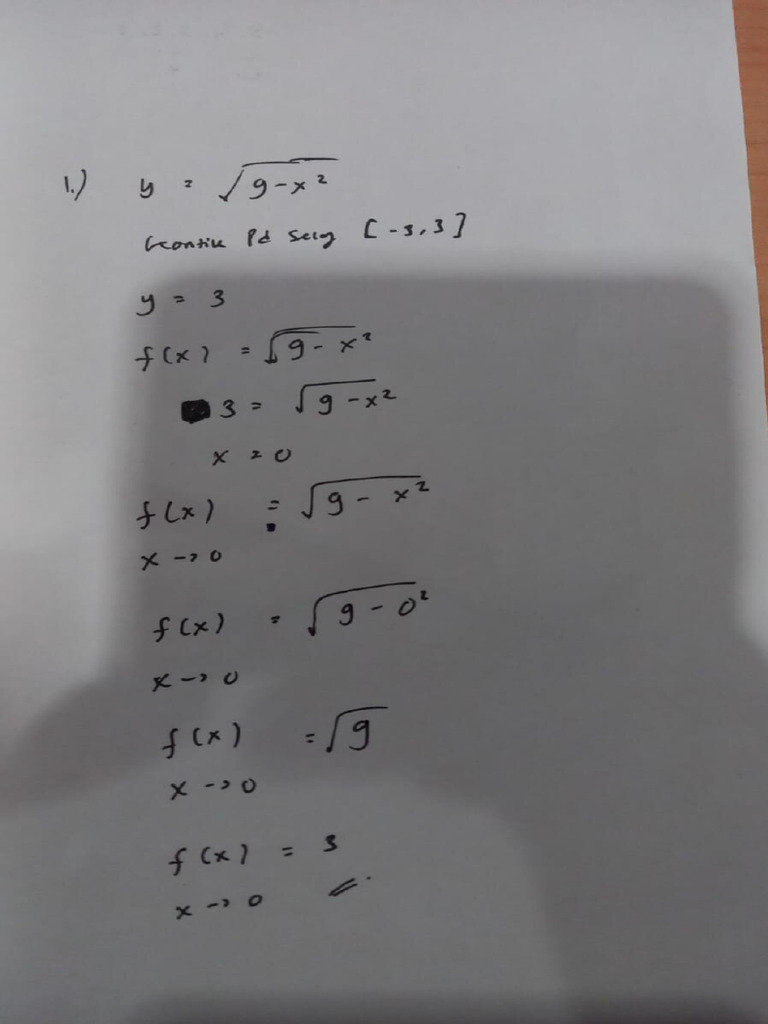 1.) y = √9-x²
Pd [-3,3]
y = 3
f(x) = √9-x²
3 = √9-x²
x = 0
f(x) = √9-x²
x → 0
f(x) = √9-0²
x → 0
f(x) = √9
x → 0
f(x) = 3
x → 0